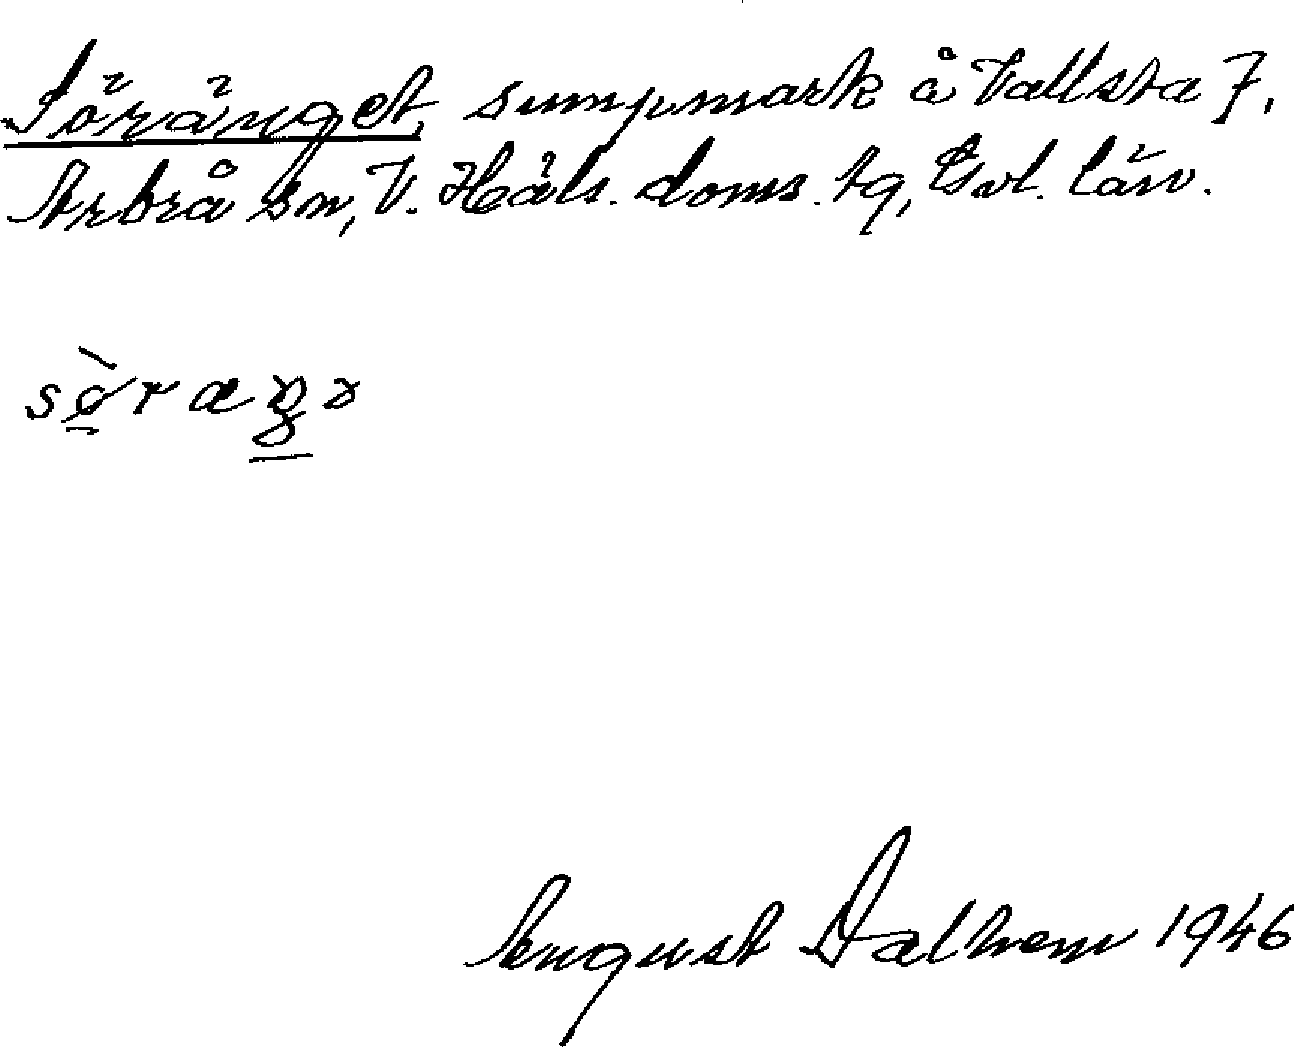 Söränget, sumpmark å Vallsta 7,
Arbrå sn, V. Häls. doms. tg, Gvl. län.
August Dalhem 1946